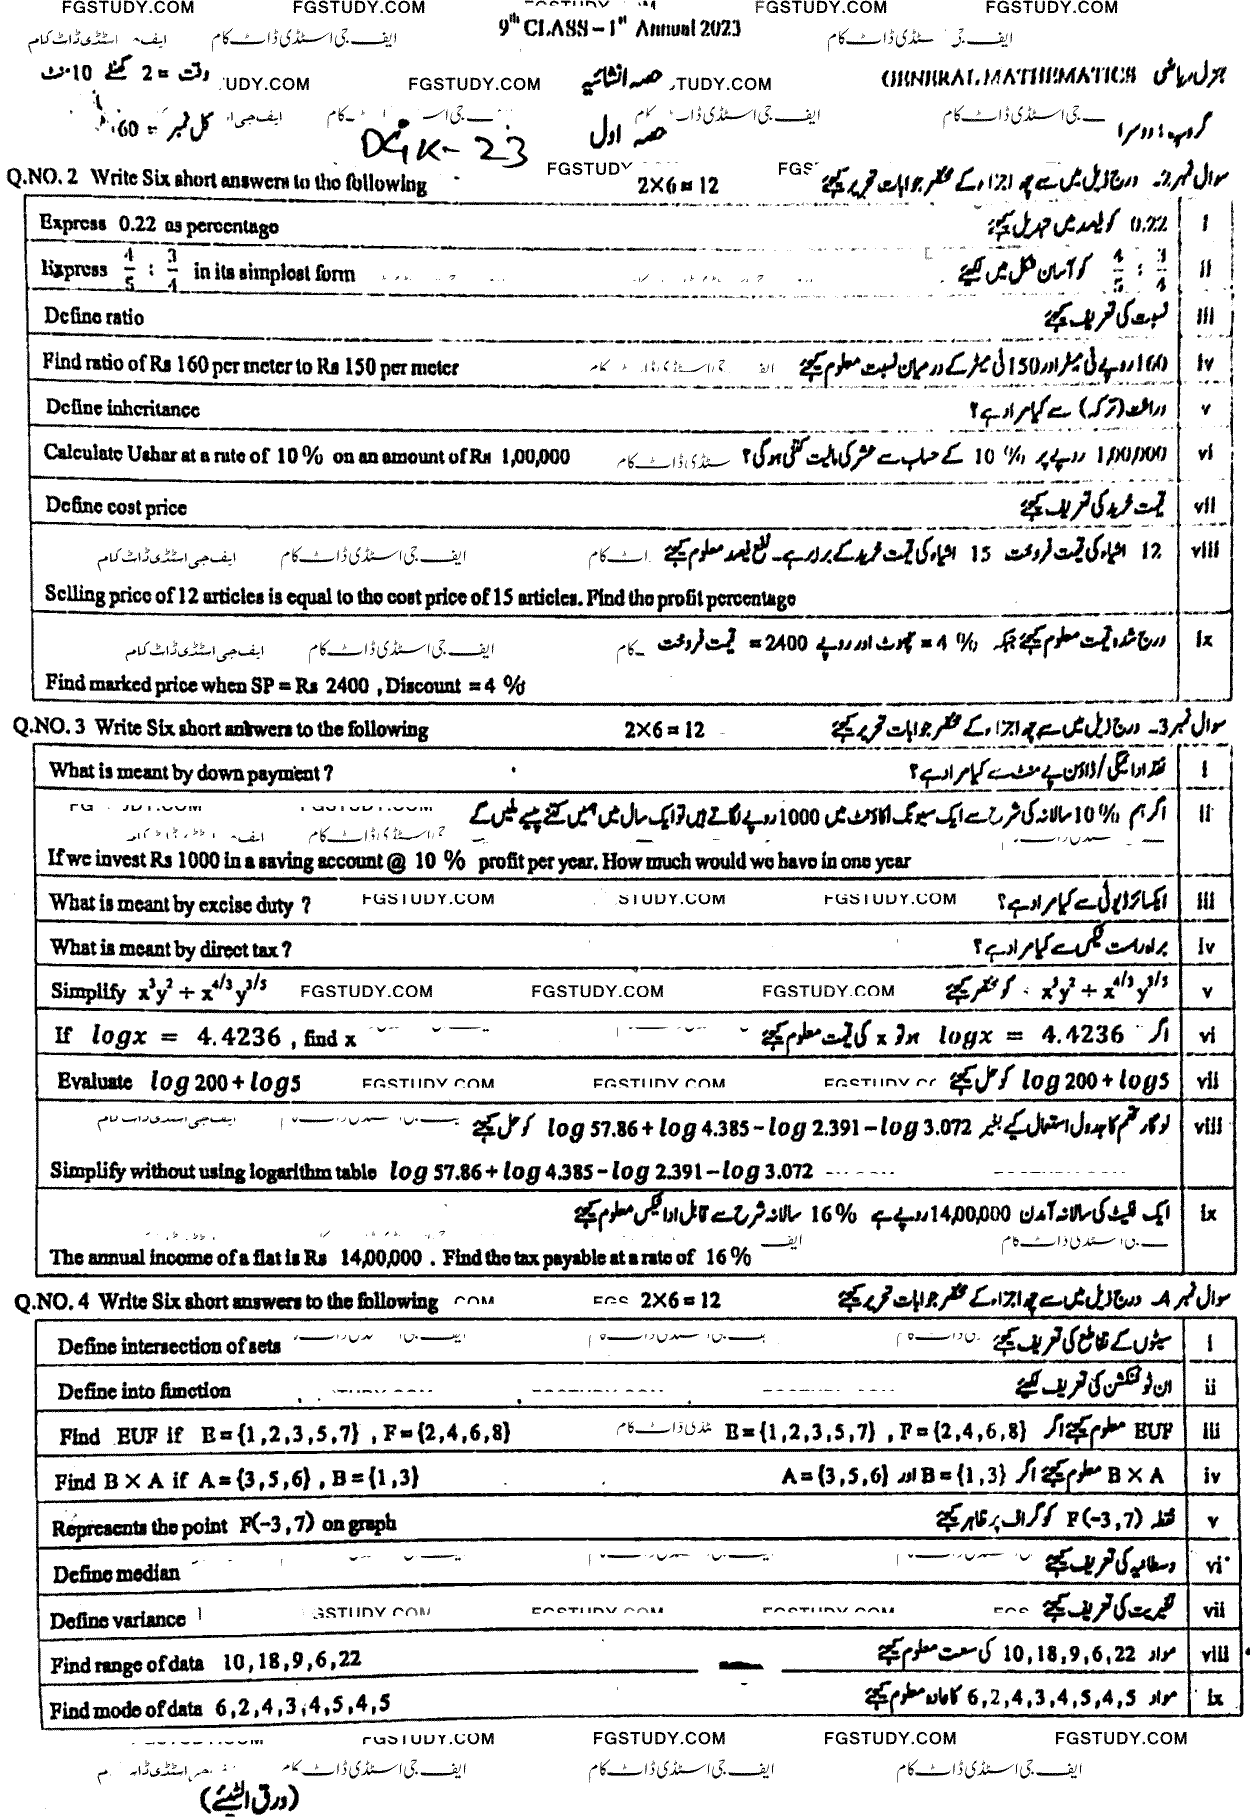 FGSTUDY.COM FGSTUDY.COM FGSTUDY.COM FGSTUDY.COM
9th CLASS – 1st Annual 2023
ایف جی اسٹڈی ڈاٹ کام
GENERAL MATHEMATICS جنرل ریاضی
حصہ انشائیہ
وقت = 2 گھنٹے 10 منٹ
FGSTUDY.COM
گروپ : دوسرا
حصہ اول
کل نمبر = 60
DGK-23
Q.NO. 2 Write Six short answers to the following 2×6=12 سوال نمبر 2۔ درج ذیل میں سے چھ اجزاء کے مختصر جوابات تحریر کیجئے
Express 0.22 as percentage 0.22 کو فیصد میں تبدیل کیجئے i
Express 4/5 : 3/4 in its simplest form 4/5 : 3/4 کو آسان شکل میں لکھیئے ii
Define ratio نسبت کی تعریف کیجئے iii
Find ratio of Rs 160 per meter to Rs 150 per meter 160 روپے فی میٹر اور 150 فی میٹر کے درمیان نسبت معلوم کیجئے iv
Define inheritance وراثت (ترکہ) سے کیا مراد ہے؟ v
Calculate Ushar at a rate of 10 % on an amount of Rs 1,00,000 1,00,000 روپے پر 10 % کے حساب سے عشر کی مالیت کتنی ہوگی؟ vi
Define cost price قیمت خرید کی تعریف کیجئے vii
12 اشیاء کی قیمت فروخت 15 اشیاء کی قیمت خرید کے برابر ہے۔ نفع فیصد معلوم کیجئے viii
Selling price of 12 articles is equal to the cost price of 15 articles. Find the profit percentage
درج شدہ قیمت معلوم کیجئے جبکہ 4 % = چھوٹ اور روپے 2400 = قیمت فروخت ix
Find marked price when SP = Rs 2400 , Discount = 4 %
Q.NO. 3 Write Six short answers to the following 2×6=12 سوال نمبر 3۔ درج ذیل میں سے چھ اجزاء کے مختصر جوابات تحریر کیجئے
What is meant by down payment ? نقد ادائیگی / ڈاؤن پے منٹ سے کیا مراد ہے؟ i
اگر ہم 10 % سالانہ کی شرح سے ایک سیونگ اکاؤنٹ میں 1000 روپے لگاتے ہیں تو ایک سال میں ہمیں کتنے پیسے ملیں گے ii
If we invest Rs 1000 in a saving account @ 10 % profit per year. How much would we have in one year
What is meant by excise duty ? ایکسائز ڈیوٹی سے کیا مراد ہے؟ iii
What is meant by direct tax ? براہ راست ٹیکس سے کیا مراد ہے؟ iv
Simplify x³y² ÷ x^4/3 y^3/5 x³y² ÷ x^4/3 y^3/5 کو مختصر کیجئے v
If logx = 4.4236 , find x اگر logx = 4.4236 ہو تو x کی قیمت معلوم کیجئے vi
Evaluate log 200 + log5 log 200 + log5 کو حل کیجئے vii
لوگار تھم کا جدول استعمال کیے بغیر log 57.86 + log 4.385 – log 2.391 – log 3.072 کو حل کیجئے viii
Simplify without using logarithm table log 57.86 + log 4.385 – log 2.391 – log 3.072
ایک فلیٹ کی سالانہ آمدن 14,00,000 روپے ہے 16% سالانہ شرح سے قابل ادا ٹیکس معلوم کیجئے ix
The annual income of a flat is Rs 14,00,000 . Find the tax payable at a rate of 16 %
Q.NO. 4 Write Six short answers to the following 2×6=12 سوال نمبر 4۔ درج ذیل میں سے چھ اجزاء کے مختصر جوابات تحریر کیجئے
Define intersection of sets سیٹوں کے تقاطع کی تعریف کیجئے i
Define into function ان ٹو فنکشن کی تعریف لکھیئے ii
Find EUF if E={1,2,3,5,7} , F={2,4,6,8} EUF معلوم کیجئے اگر E={1,2,3,5,7} , F={2,4,6,8} iii
Find B × A if A={3,5,6} , B={1,3} B × A معلوم کیجئے اگر B={1,3} اور A={3,5,6} iv
Represents the point P(-3,7) on graph نقطہ P(-3,7) کو گراف پر ظاہر کیجئے v
Define median وسطانیہ کی تعریف کیجئے vi
Define variance تغیریت کی تعریف کیجئے vii
Find range of data 10,18,9,6,22 مواد 10,18,9,6,22 کی سعت معلوم کیجئے viii
Find mode of data 6,2,4,3,4,5,4,5 مواد 6,2,4,3,4,5,4,5 کا عادہ معلوم کیجئے ix
FGSTUDY.COM FGSTUDY.COM FGSTUDY.COM FGSTUDY.COM
ایف جی اسٹڈی ڈاٹ کام ایف جی اسٹڈی ڈاٹ کام ایف جی اسٹڈی ڈاٹ کام
(ورق الٹیئے)